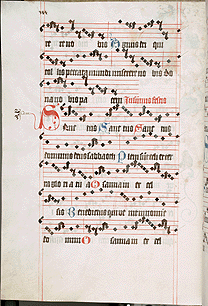 re no bis Agnus dei qui
tol lis peccata mundi miserere no bis Do
na no bis pa cem
Sanc tus Sanc tus Sanc tus
dominus deus sabbaoth Pleni sunt celi et ter
ra glo ri a tu a Osanna in ex cel
sis Benedictus qui ve nit in nomine
do mini O sanna in ex cel